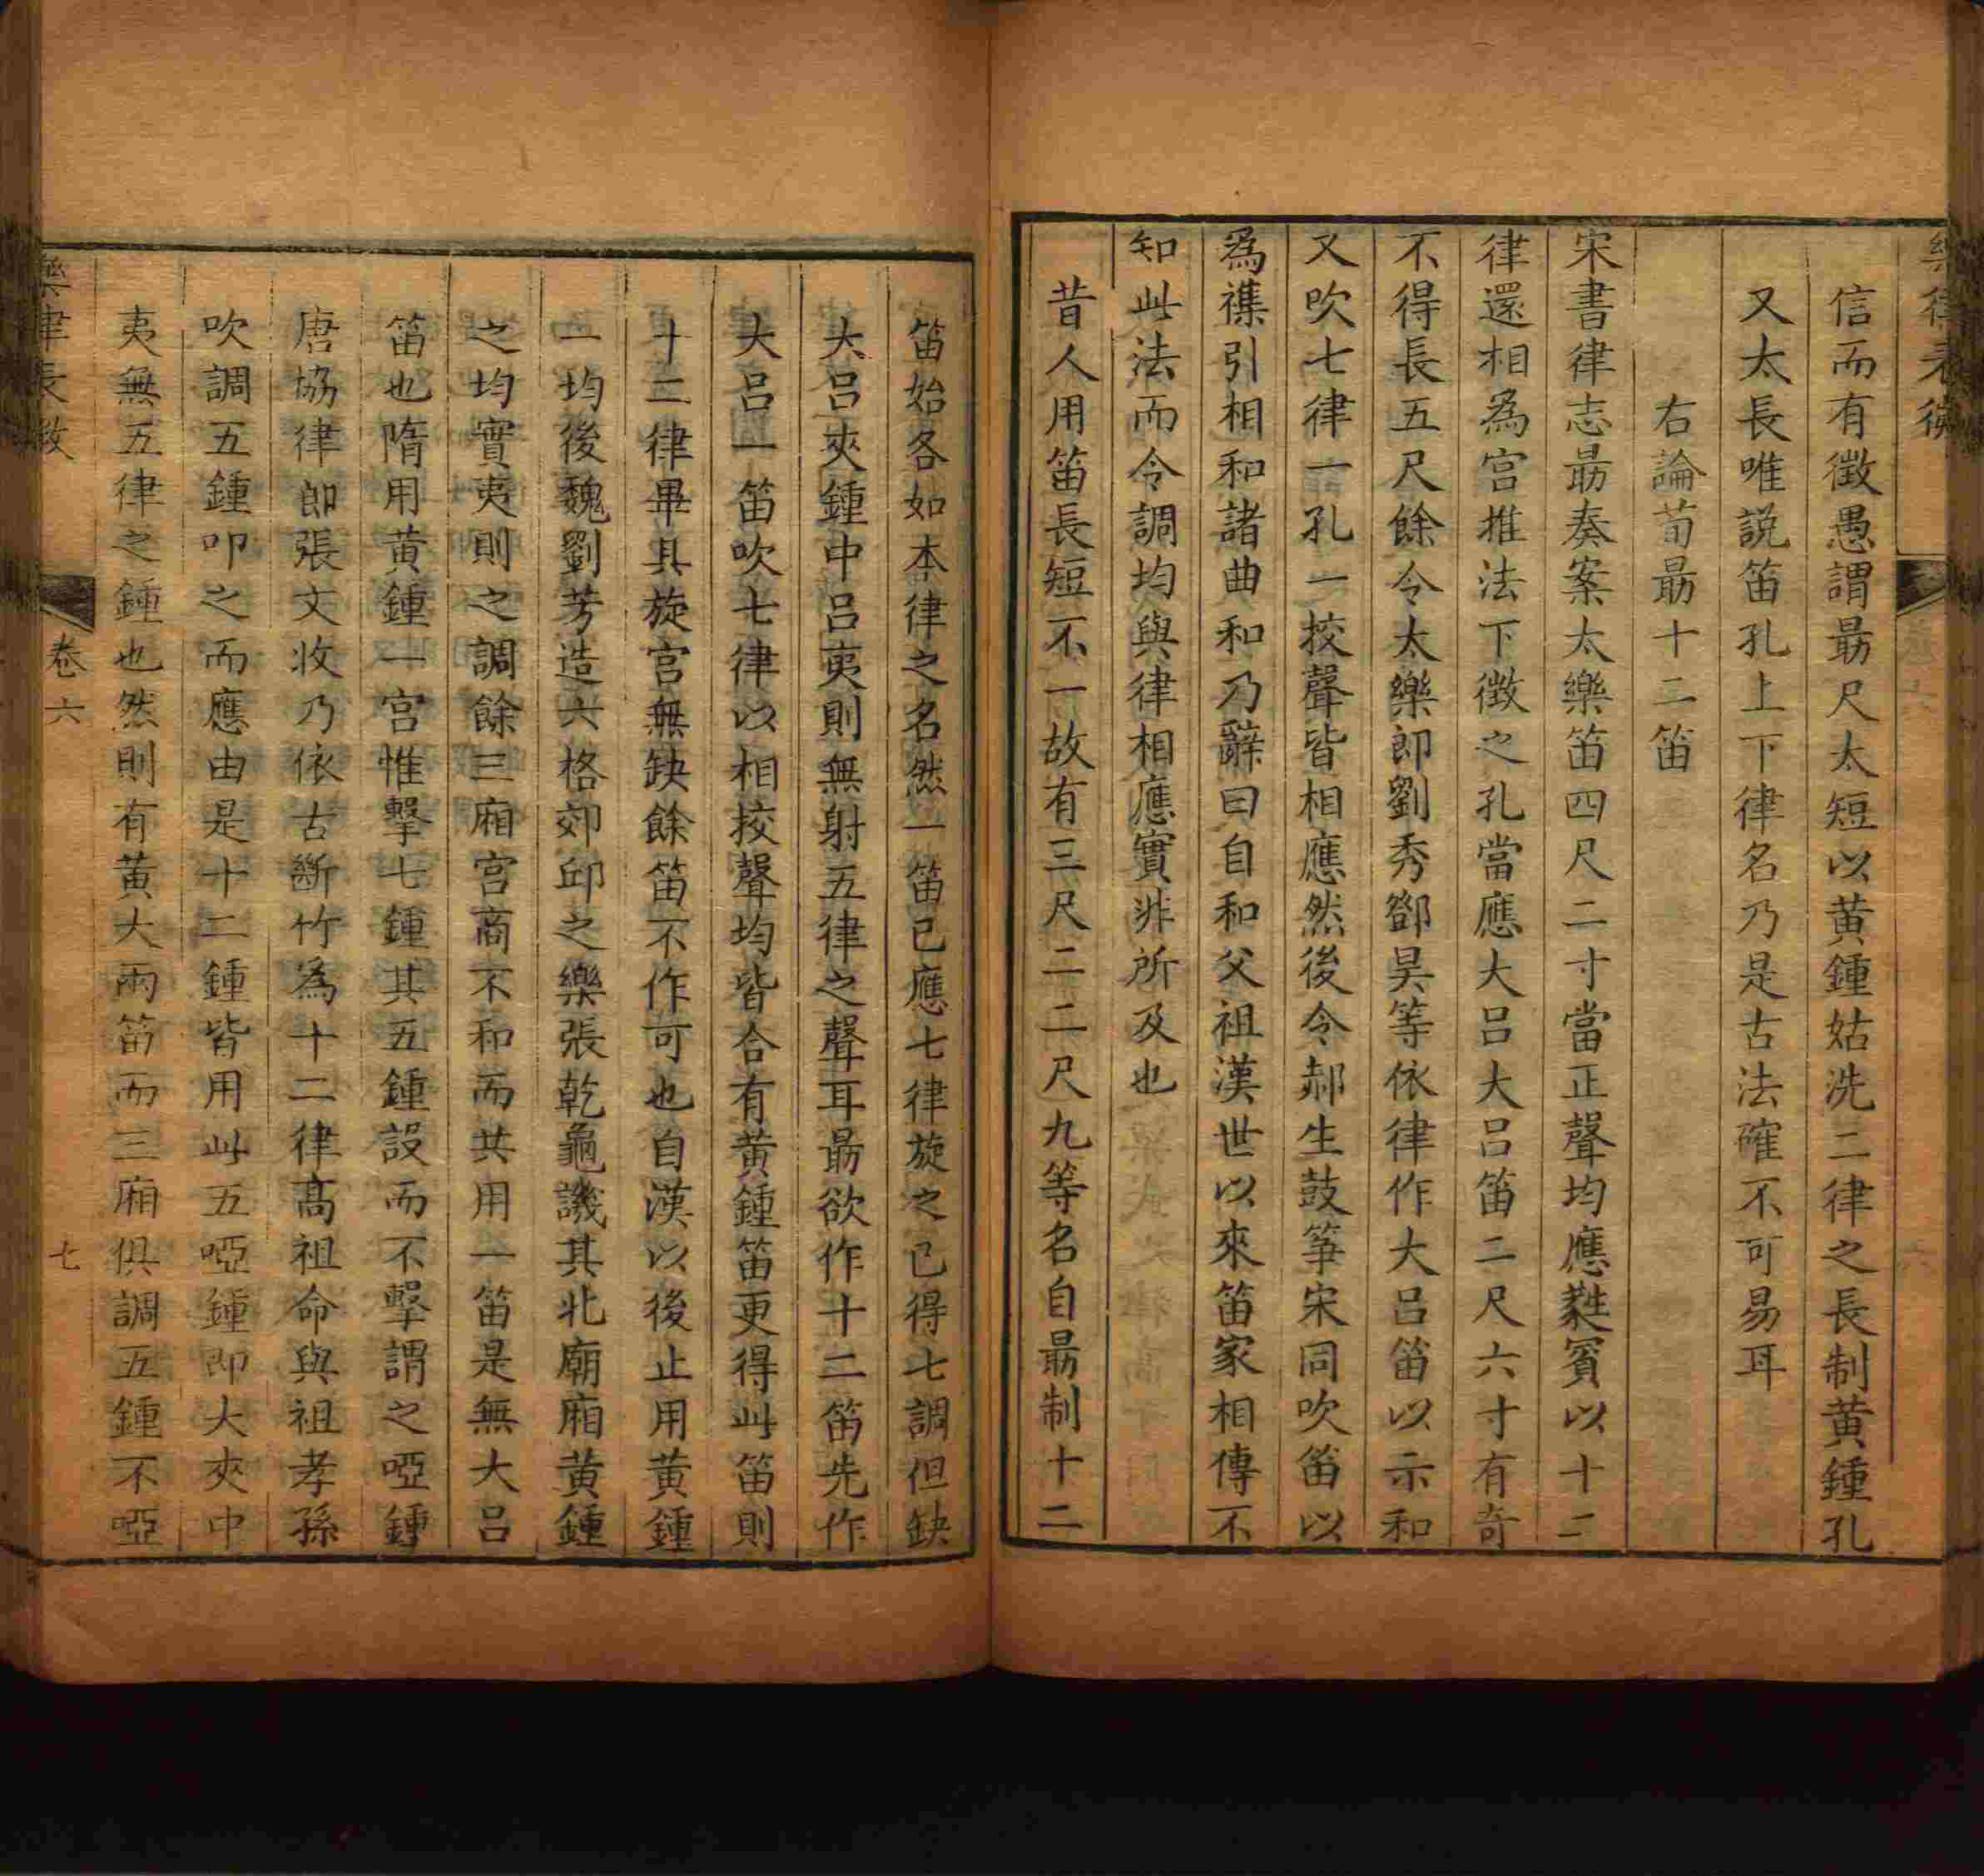 信而有徵愚謂朂尺太短以黃鍾姑洗二律之長制黃鍾孔
又太長唯説笛孔上下律名乃是古法確不可易耳
右論荀朂十二笛
宋書律志朂奏案太樂笛四尺二寸當正聲均應蕤賓以十二
律還相為宮推法下徵之孔當應大呂大呂笛二尺六寸有奇
不得長五尺餘令太樂郎劉秀鄧昊等依律作大呂笛以示和
又吹七律一孔一挍聲皆相應然後令郝生鼓箏宋同吹笛以
為襍引相和諸曲和乃辭曰自和父祖漢世以來笛家相傳不
知此法而令調均與律相應實非所及也
昔人用笛長短不一故有三尺二二尺九等名自朂制十二
笛始各如本律之名然一笛已應七律旋之已得七調但缺
大呂夾鍾中呂夷則無射五律之聲耳朂欲作十二笛先作
大呂一笛吹七律以相挍聲均皆合有黃鍾笛更得此笛則
十二律畢具旋宮無缺餘笛不作可也自漢以後止用黃鍾
一均後魏劉芳造六格郊邱之樂張乾龜譏其北廟廂黃鍾
之均實夷則之調餘三廂宮商不和而共用一笛是無大呂
笛也隋用黃鍾一宮惟擊七鍾其五鍾設而不擊謂之啞鍾
唐協律郎張文收乃依古斷竹為十二律高祖命與祖孝孫
吹調五鍾叩之而應由是十二鍾皆用此五啞鍾即大夾中
夷無五律之鍾也然則有黃大兩笛而三廂俱調五鍾不啞
卷六
七